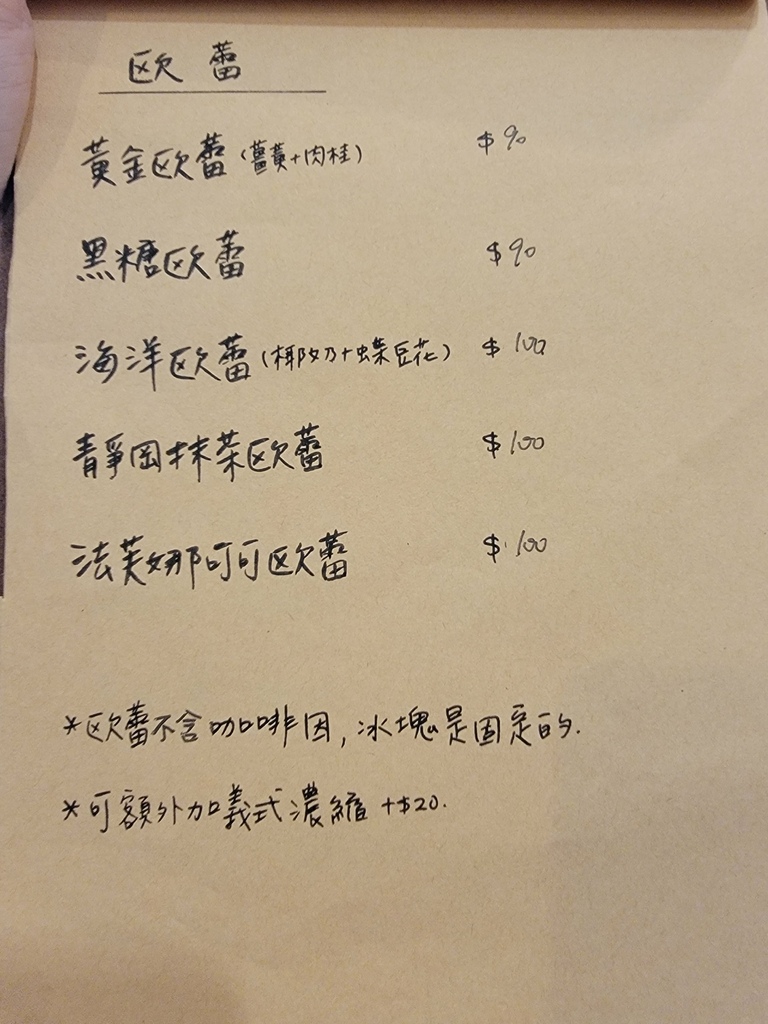 欧蕾
黃金欧蕾(薑黃+肉桂) $90
黑糖欧蕾 $90
海洋欧蕾(椰奶+蝶豆花) $100
靜岡抹茶欧蕾 $100
法芙娜可可欧蕾 $100
*欧蕾不含咖啡因,冰塊是固定的.
*可額外加義式濃縮 +$20.